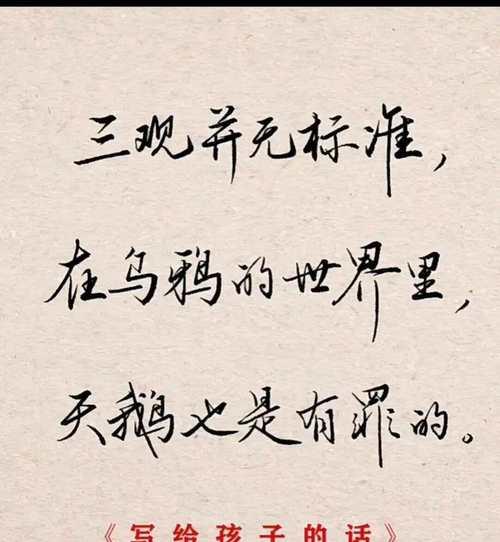 三观并无标准，
在乌鸦的世界里，
天鹅也是有罪的。
《写给孩子的话》